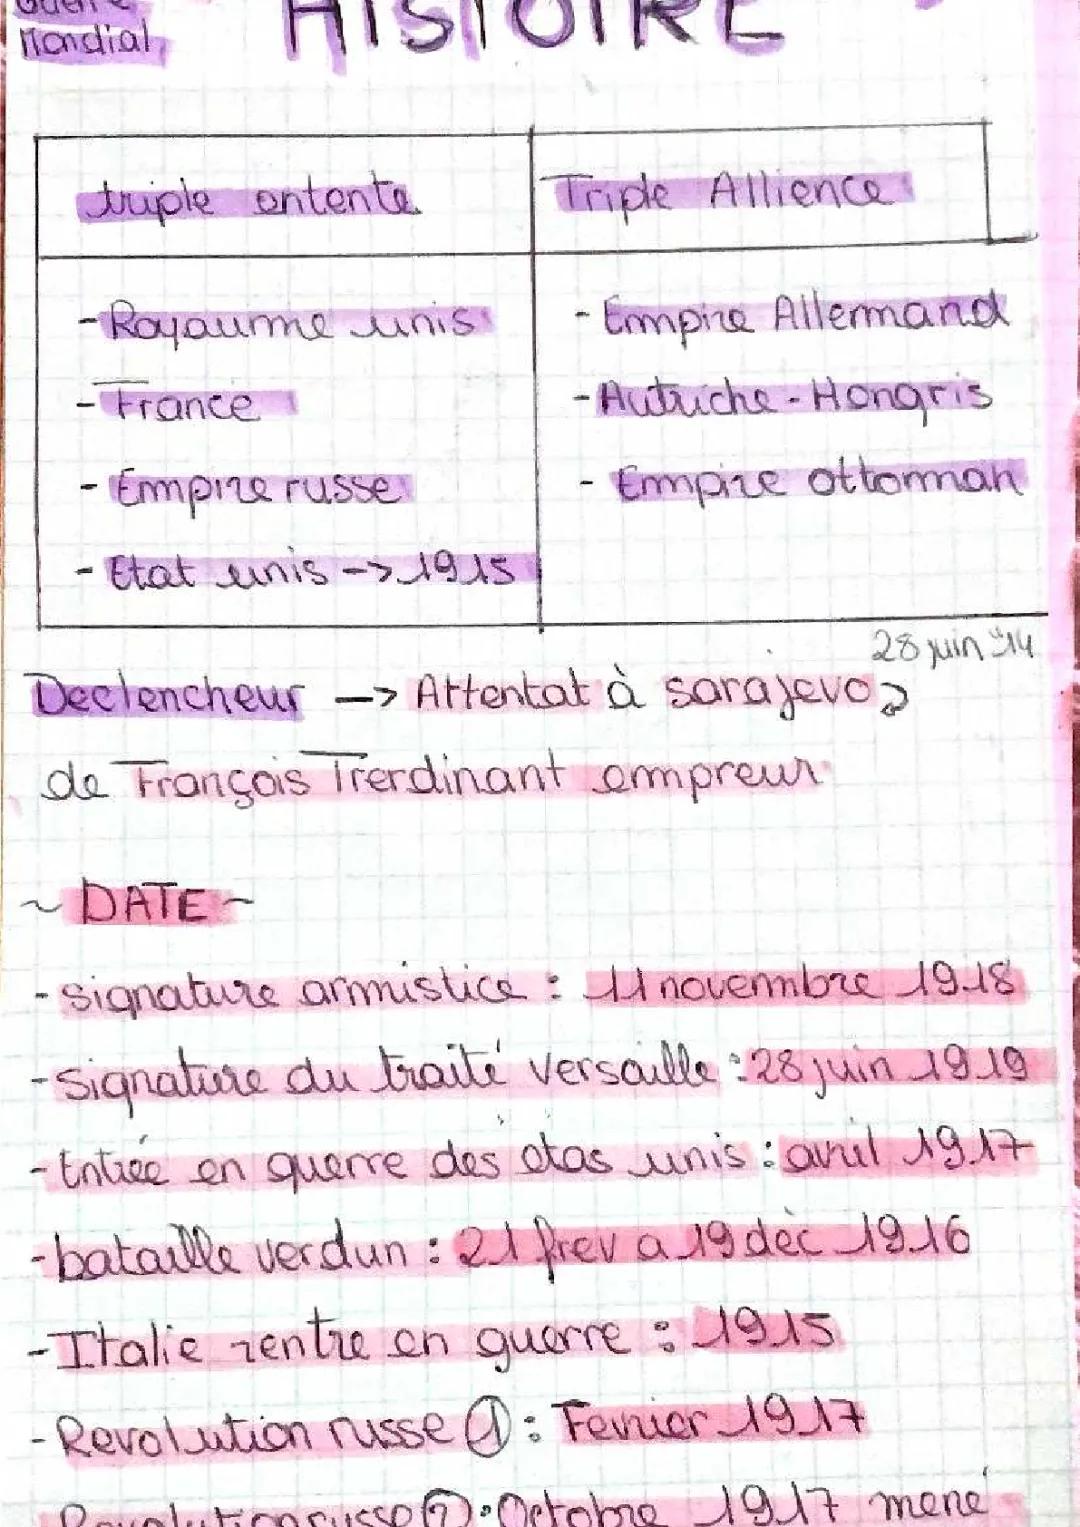 Guerre
Mondial
HISTOIRE
triple entente
Triple Allience
- Royaume unis
- France
- Empire russe
- Etat unis --> 1915
- Empire Allemand
- Autriche - Hongris
- Empire ottoman
28 juin "14
Declencheur --> Attentat à sarajevo
de François Frerdinant empreur
~ DATE ~
- signature armistice : 11 novembre 1918
- signature du traité versaille : 28 juin 1919
- Entrée en guerre des etas unis : avril 1917
- bataille verdun : 21 frev a 19 dèc 1916
- Italie rentre en guerre : 1915
- Revolution russe ① : Fevrier 1917
- Revolution russe ② : Octobre 1917 mené